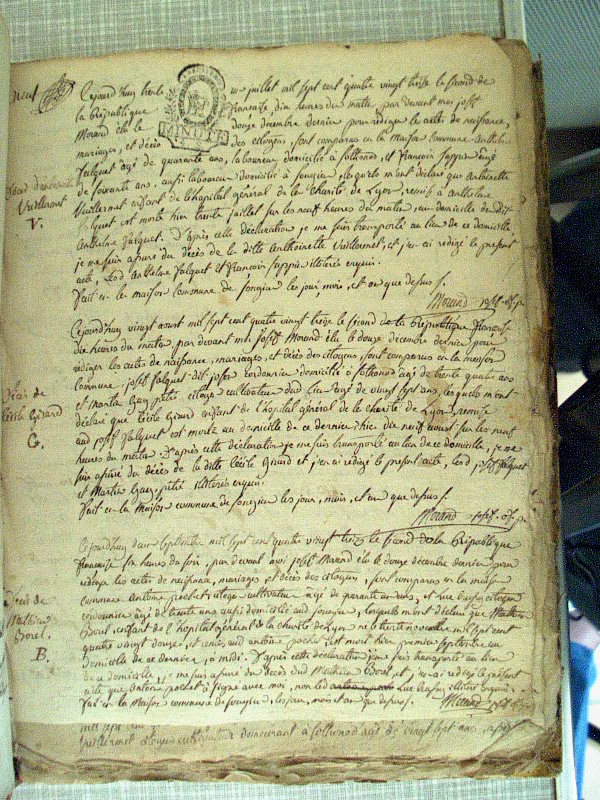 neuf
Cejourd'huy trente un juillet mil sept cent quatre vingt treize le second de
la République française dix heures du matin, par devant moi joseph
Morand élu le douze décembre dernier pour rédiger les actes de naissance,
mariages, et décès des citoyens, sont comparus en la maison commune Anthelme
falquet agé de quarante ans, laboureur domicilié à sothonod, et françois
de soixante ans, aussi laboureur domicilié à songieu, lesquels m'ont déclaré que Antoinette
Vuillermet enfant de l'hôpital général de la charité de Lyon, remise à anthelme
falquet est morte hier trente juillet sur les neuf heures du matin, au domicile du dit
Anthelme falquet. D'après cette déclaration, je me suis transporté au lieu de ce domicile,
je me suis assuré du décès de la ditte Anthoinette Vuillermet, et j'en ai redigé le présent
acte, Led. Anthelme falquet et françois illitérés enquis.
fait en la maison commune de songieu les jour, mois, et an que dessus.
Morand
Décès d'antoinette
Vuillermet
V.
MINUTE
Cejourd'huy vingt aoust mil sept cent quatre vingt treize le second de la République française
dix heures du matin, par devant moi joseph Morand élu le douze décembre dernier pour
rédiger les actes de naissance, mariages, et décès des citoyens, sont comparus en la maison
commune, joseph falquet dit josse cordonnier domicilié à sothonod agé de trente quatre ans
et Martin Gay, citoyen cultivateur dud. lieu agé de vingt sept ans, lesquels m'ont
déclaré que Cécile Girard enfant de l'hôpital général de la charité de Lyon, remise
aud. joseph falquet est morte au domicile de ce dernier hier dix neuf aoust sur les neuf
heures du matin. D'après cette déclaration je me suis transporté au lieu de ce domicile, je me
suis assuré du décès de la ditte Cécile Girard et j'en ai redigé le présent acte, Led. joseph falquet
et Martin Gay, illitérés enquis.
fait en la maison commune de songieu les jour, mois, et an que dessus.
Morand
Décès de
Cécile Girard
G.
Cejourd'huy deux septembre mil sept cent quatre vingt treize le second de la République
française six heures du soir, par devant moi joseph Morand élu le douze décembre dernier pour
rédiger les actes de naissance, mariages et décès des citoyens, sont comparus en la maison
commune antoine pochet citoyen cultivateur agé de quarante ans, et citoyen
agé de trente ans aussi domicilié aud. songieu, lesquels m'ont déclaré que Mathieu
Borel, enfant de l'hôpital général de la charité de Lyon mil sept cent
quatre vingt douze, et remis aud. antoine pochet, est mort hier premier septembre au
domicile de ce dernier, à midi. D'après cette déclaration je me suis transporté au lieu
de ce domicile, je me suis assuré du décès dud. Mathieu Borel et j'en ai redigé le présent
acte que antoine pochet a signé avec moi, non led. illitéré enquis.
fait en la Maison commune de songieu, les jour, mois et an que dessus.
Morand
Décès de
Mathieu
Borel.
B.
mil sept cent
Vuillermet citoyen cultivateur demeurant à sothonod agé de vingt sept ans,